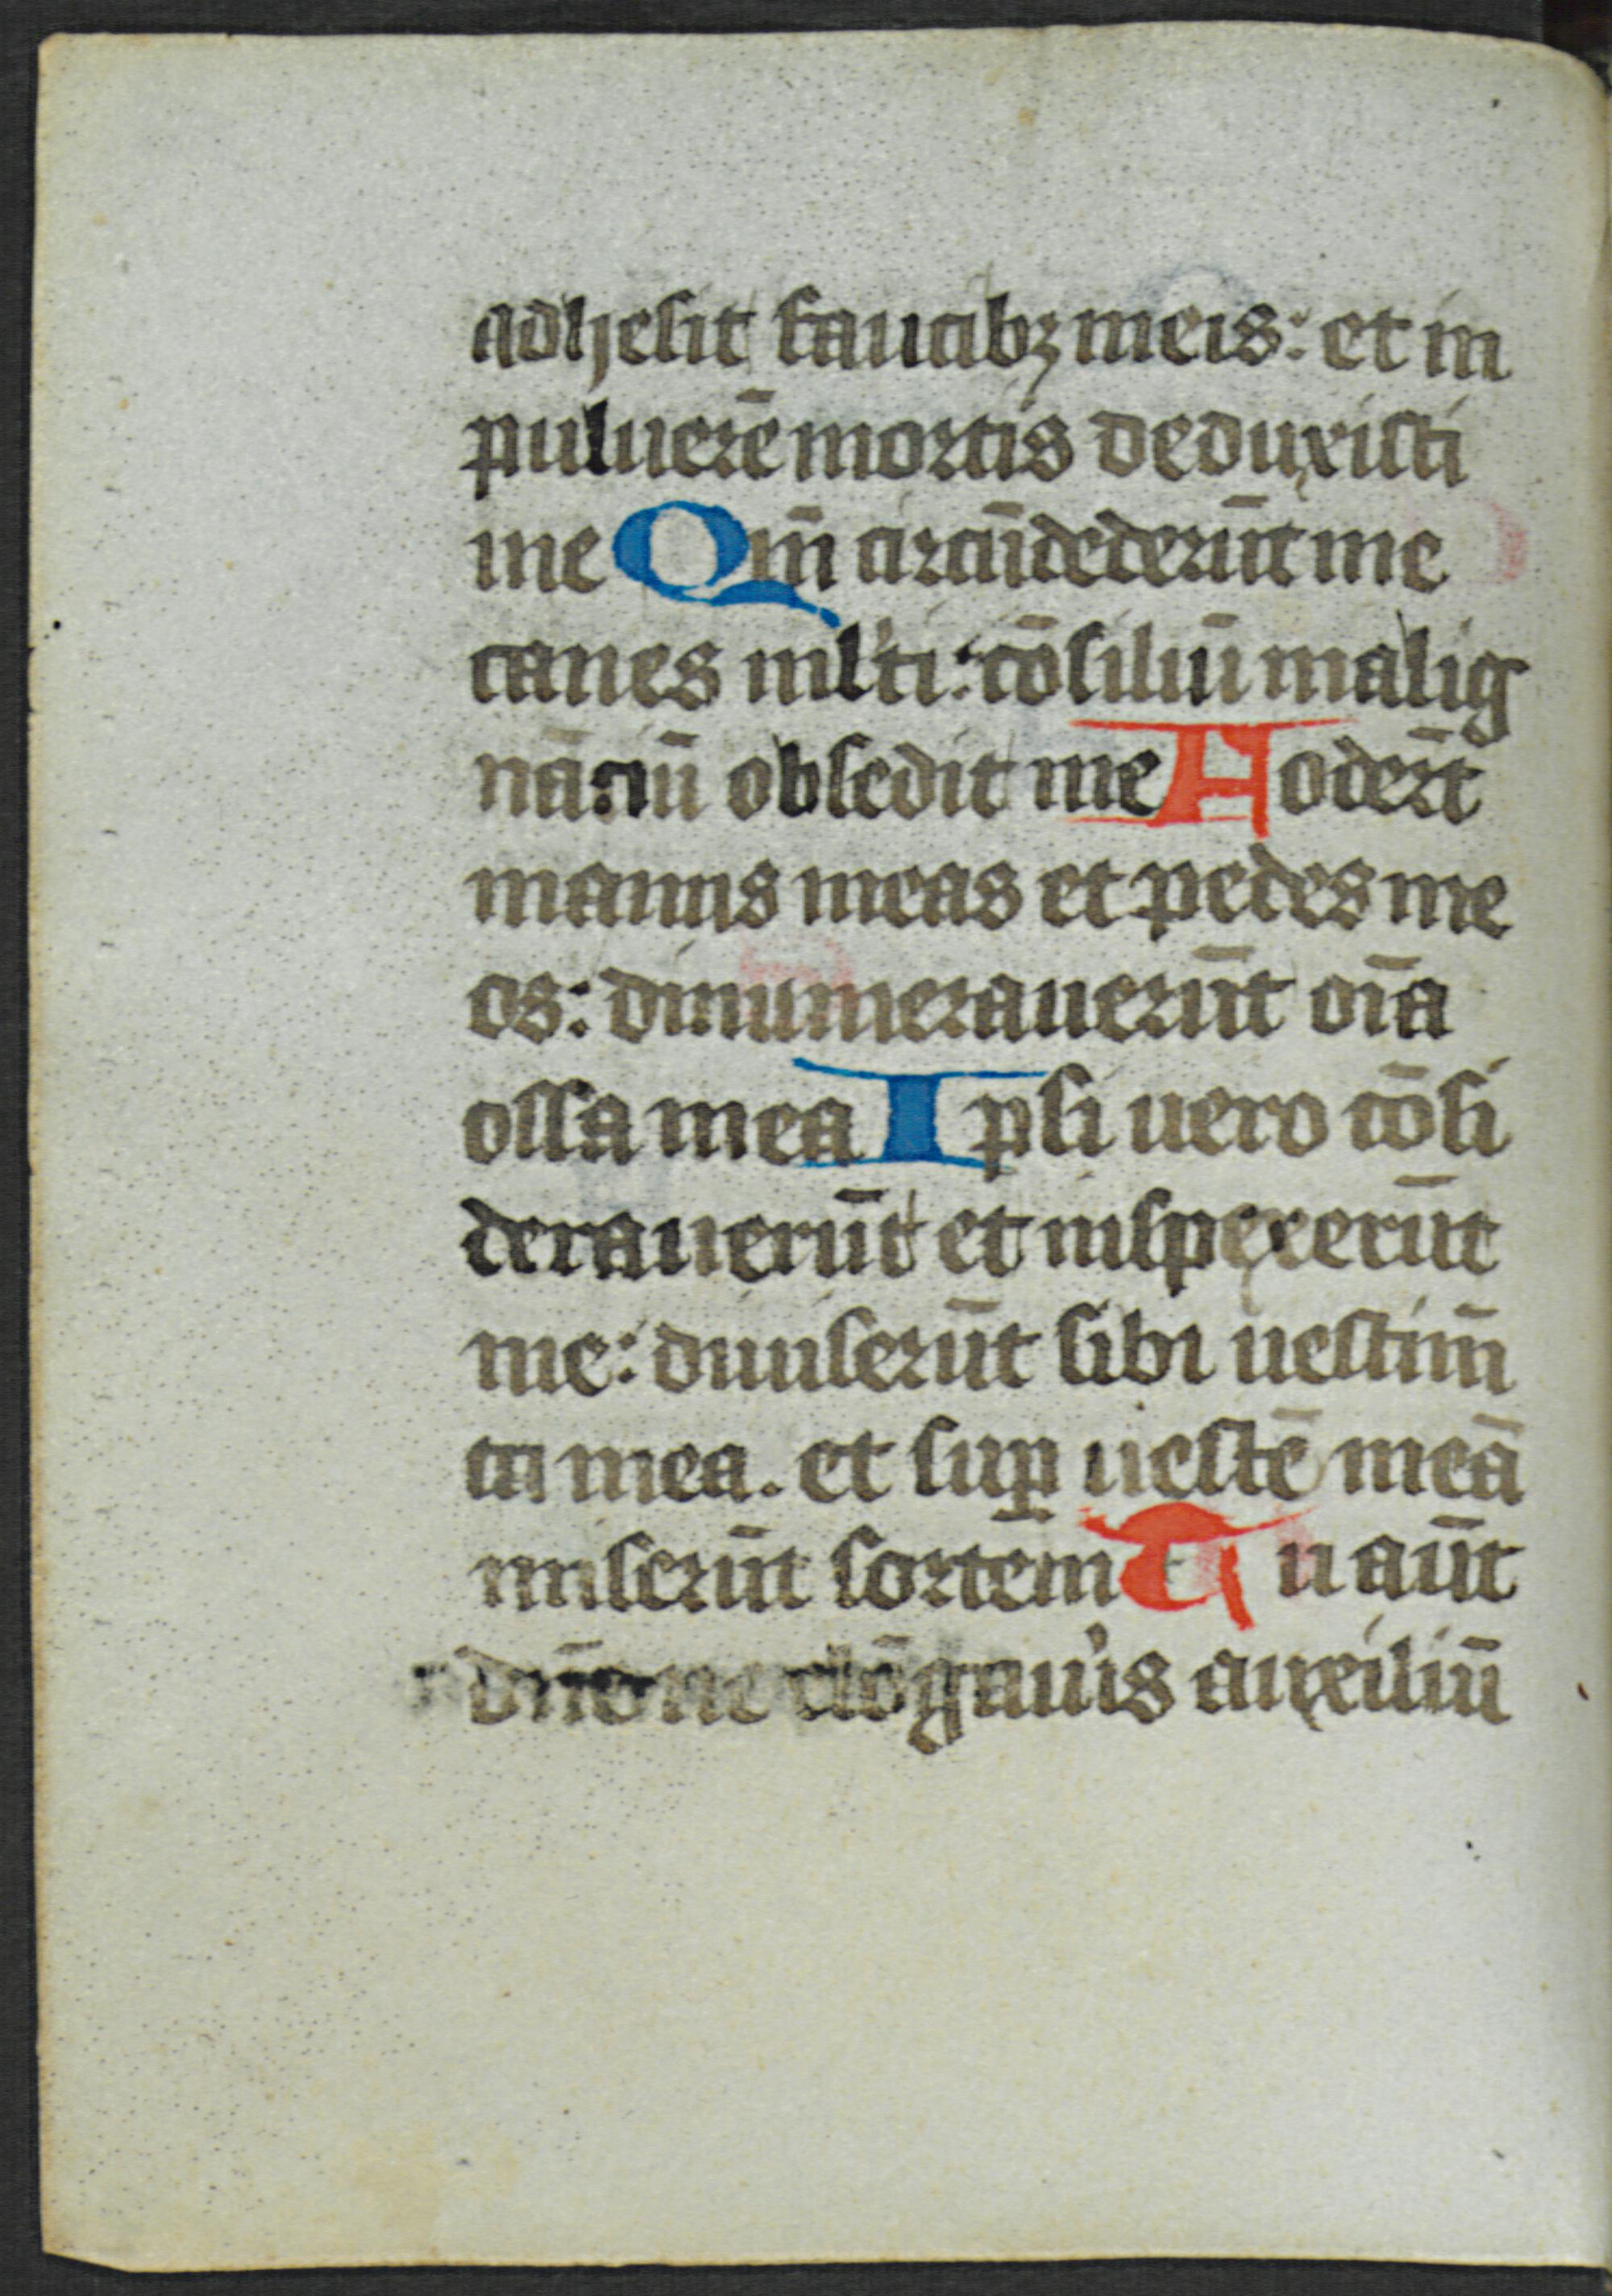 adhesit faucibꝫ meis: et in
puluerē mortis deduxisti
me Qm̄ circūdederūt me
canes ml'ti: cōsiliū malig
nāciū obsedit me Foder̄t
manus meas et pedes me
os: dinumerauerūt oīa
ossa mea Ipsi uero cōsi
derauerūt et inspexerūt
me: diuiserūt sibi uestim̄
ta mea. et suꝑ uestē meā
miserūt sortem Tu aūt
dn̄e ne elōgau'is auxiliū